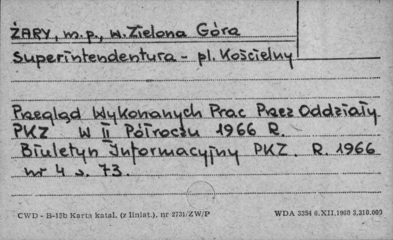 ŻARY, m.p., w. Zielona Góra
Superintendentura - pl. Kościelny
Przegląd Wykonanych Prac Przez Oddziały
PKZ w II Półroczu 1966 R.
Biuletyn Informacyjny PKZ. R. 1966
nr 4 s. 73.
CWD - B-12b Karta katal. (z liniat.), nr 2731/ZW/P WDA 3354 6.XII.1960 3.310.000